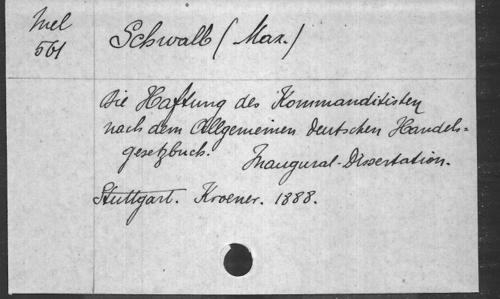 Mel
561
Schwalb (Max.)
Die Haftung des Kommanditisten
nach dem Allgemeinen Deutschen Handels=
gesetzbuch. Inaugural-Dissertation.
Stuttgart. Kroener. 1888.